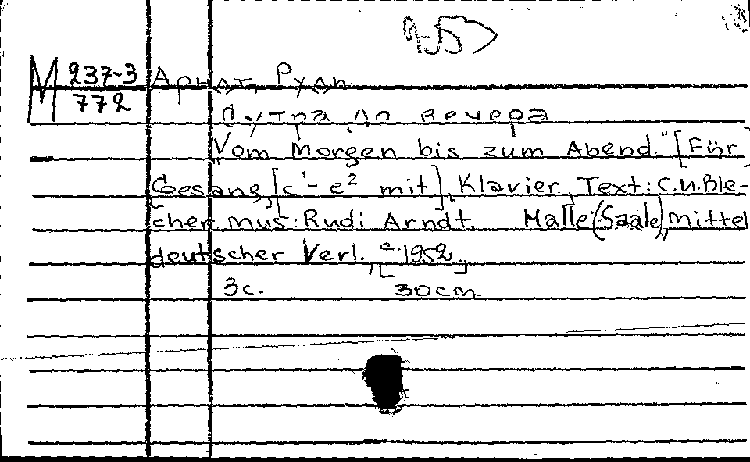 М 237-3 Арндт, Руди
772
С утра до вечера
"Vom Morgen bis zum Abend." [Für
Gesang [c¹-e² mit], Klavier, Text: C.U.Ble-
cher, mus: Rudi Arndt. Halle (Saale), mittel
deutscher Verl., [c.1952]
3с. 30cm